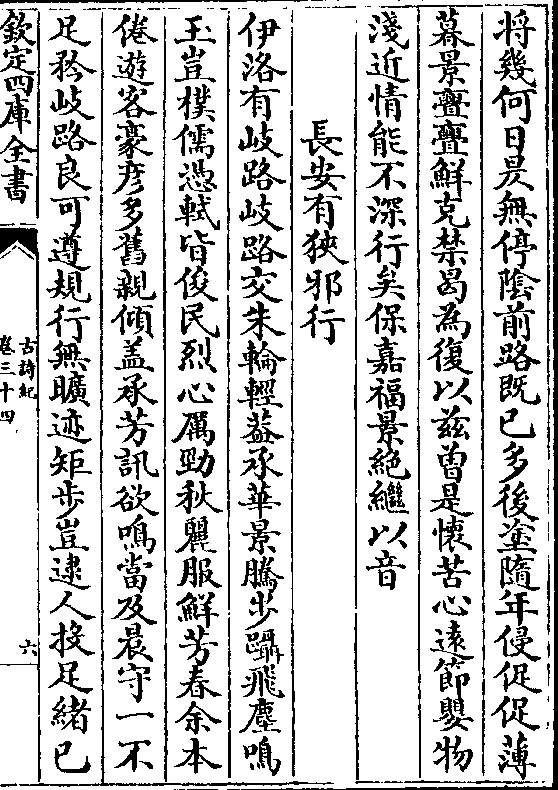 将幾何日昃無停陰前路既已多後塗隨年侵促促薄
暮景亹亹鮮克禁曷為復以兹曽是懷苦心遠節嬰物
淺近情能不深行矣保嘉福景絶繼以音
長安有狹邪行
伊洛有岐路岐路交朱輪輕葢承華景騰步躡飛塵鳴
玉豈樸儒憑軾皆俊民烈心厲勁秋麗服鮮芳春余本
倦遊客豪彦多舊親傾盖承芳訊欲鳴當及晨守一不
足矜岐路良可遵規行無曠迹矩步豈逮人投足緒已
欽定四庫全書
古詩紀
卷三十四
六